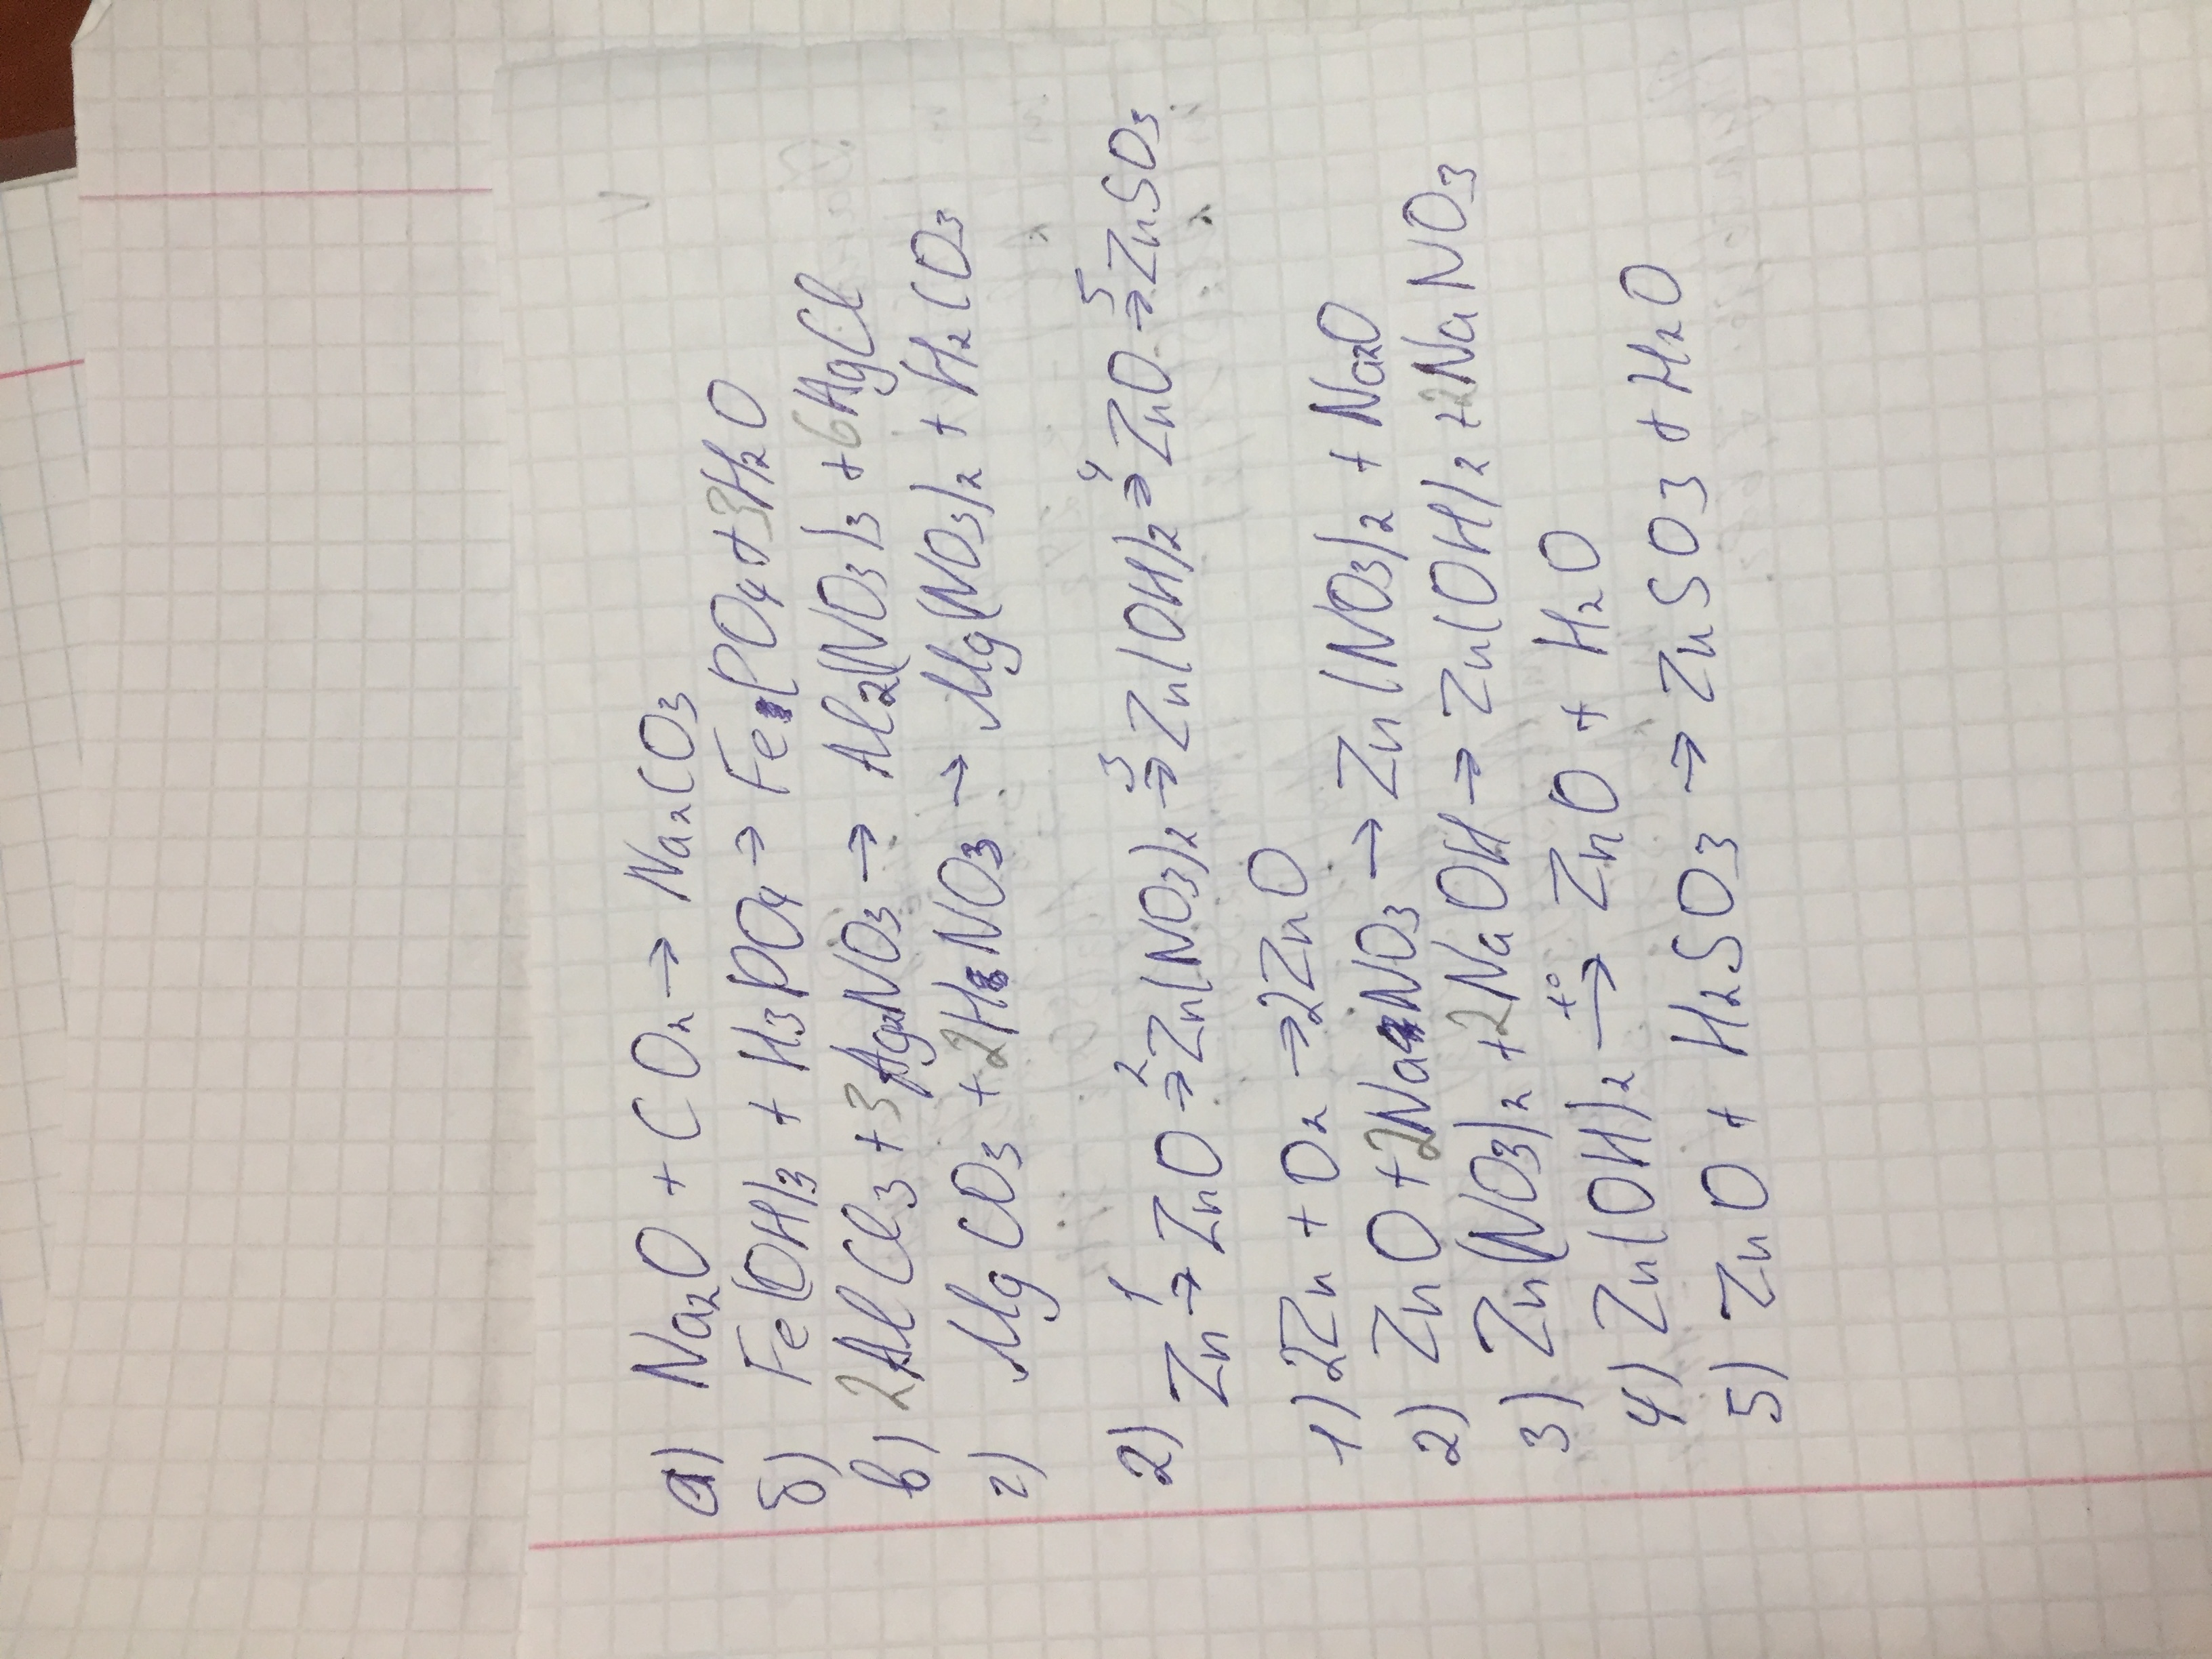 а) Na₂O + CO₂ → Na₂CO₃
б) Fe(OH)₃ + H₃PO₄ → FePO₄ + 3H₂O
в) 2AlCl₃ + 3Ag₂NO₃ → Al₂(NO₃)₃ + 6AgCl
г) MgCO₃ + 2HNO₃ → Mg(NO₃)₂ + H₂CO₃
2) Zn →¹ ZnO →² Zn(NO₃)₂ →³ Zn(OH)₂ →⁴ ZnO →⁵ ZnSO₃
1) 2Zn + O₂ → 2ZnO
2) ZnO + 2NaNO₃ → Zn(NO₃)₂ + Na₂O
3) Zn(NO₃)₂ + 2NaOH → Zn(OH)₂ + 2NaNO₃
4) Zn(OH)₂ →ᵗ° ZnO + H₂O
5) ZnO + H₂SO₃ → ZnSO₃ + H₂O